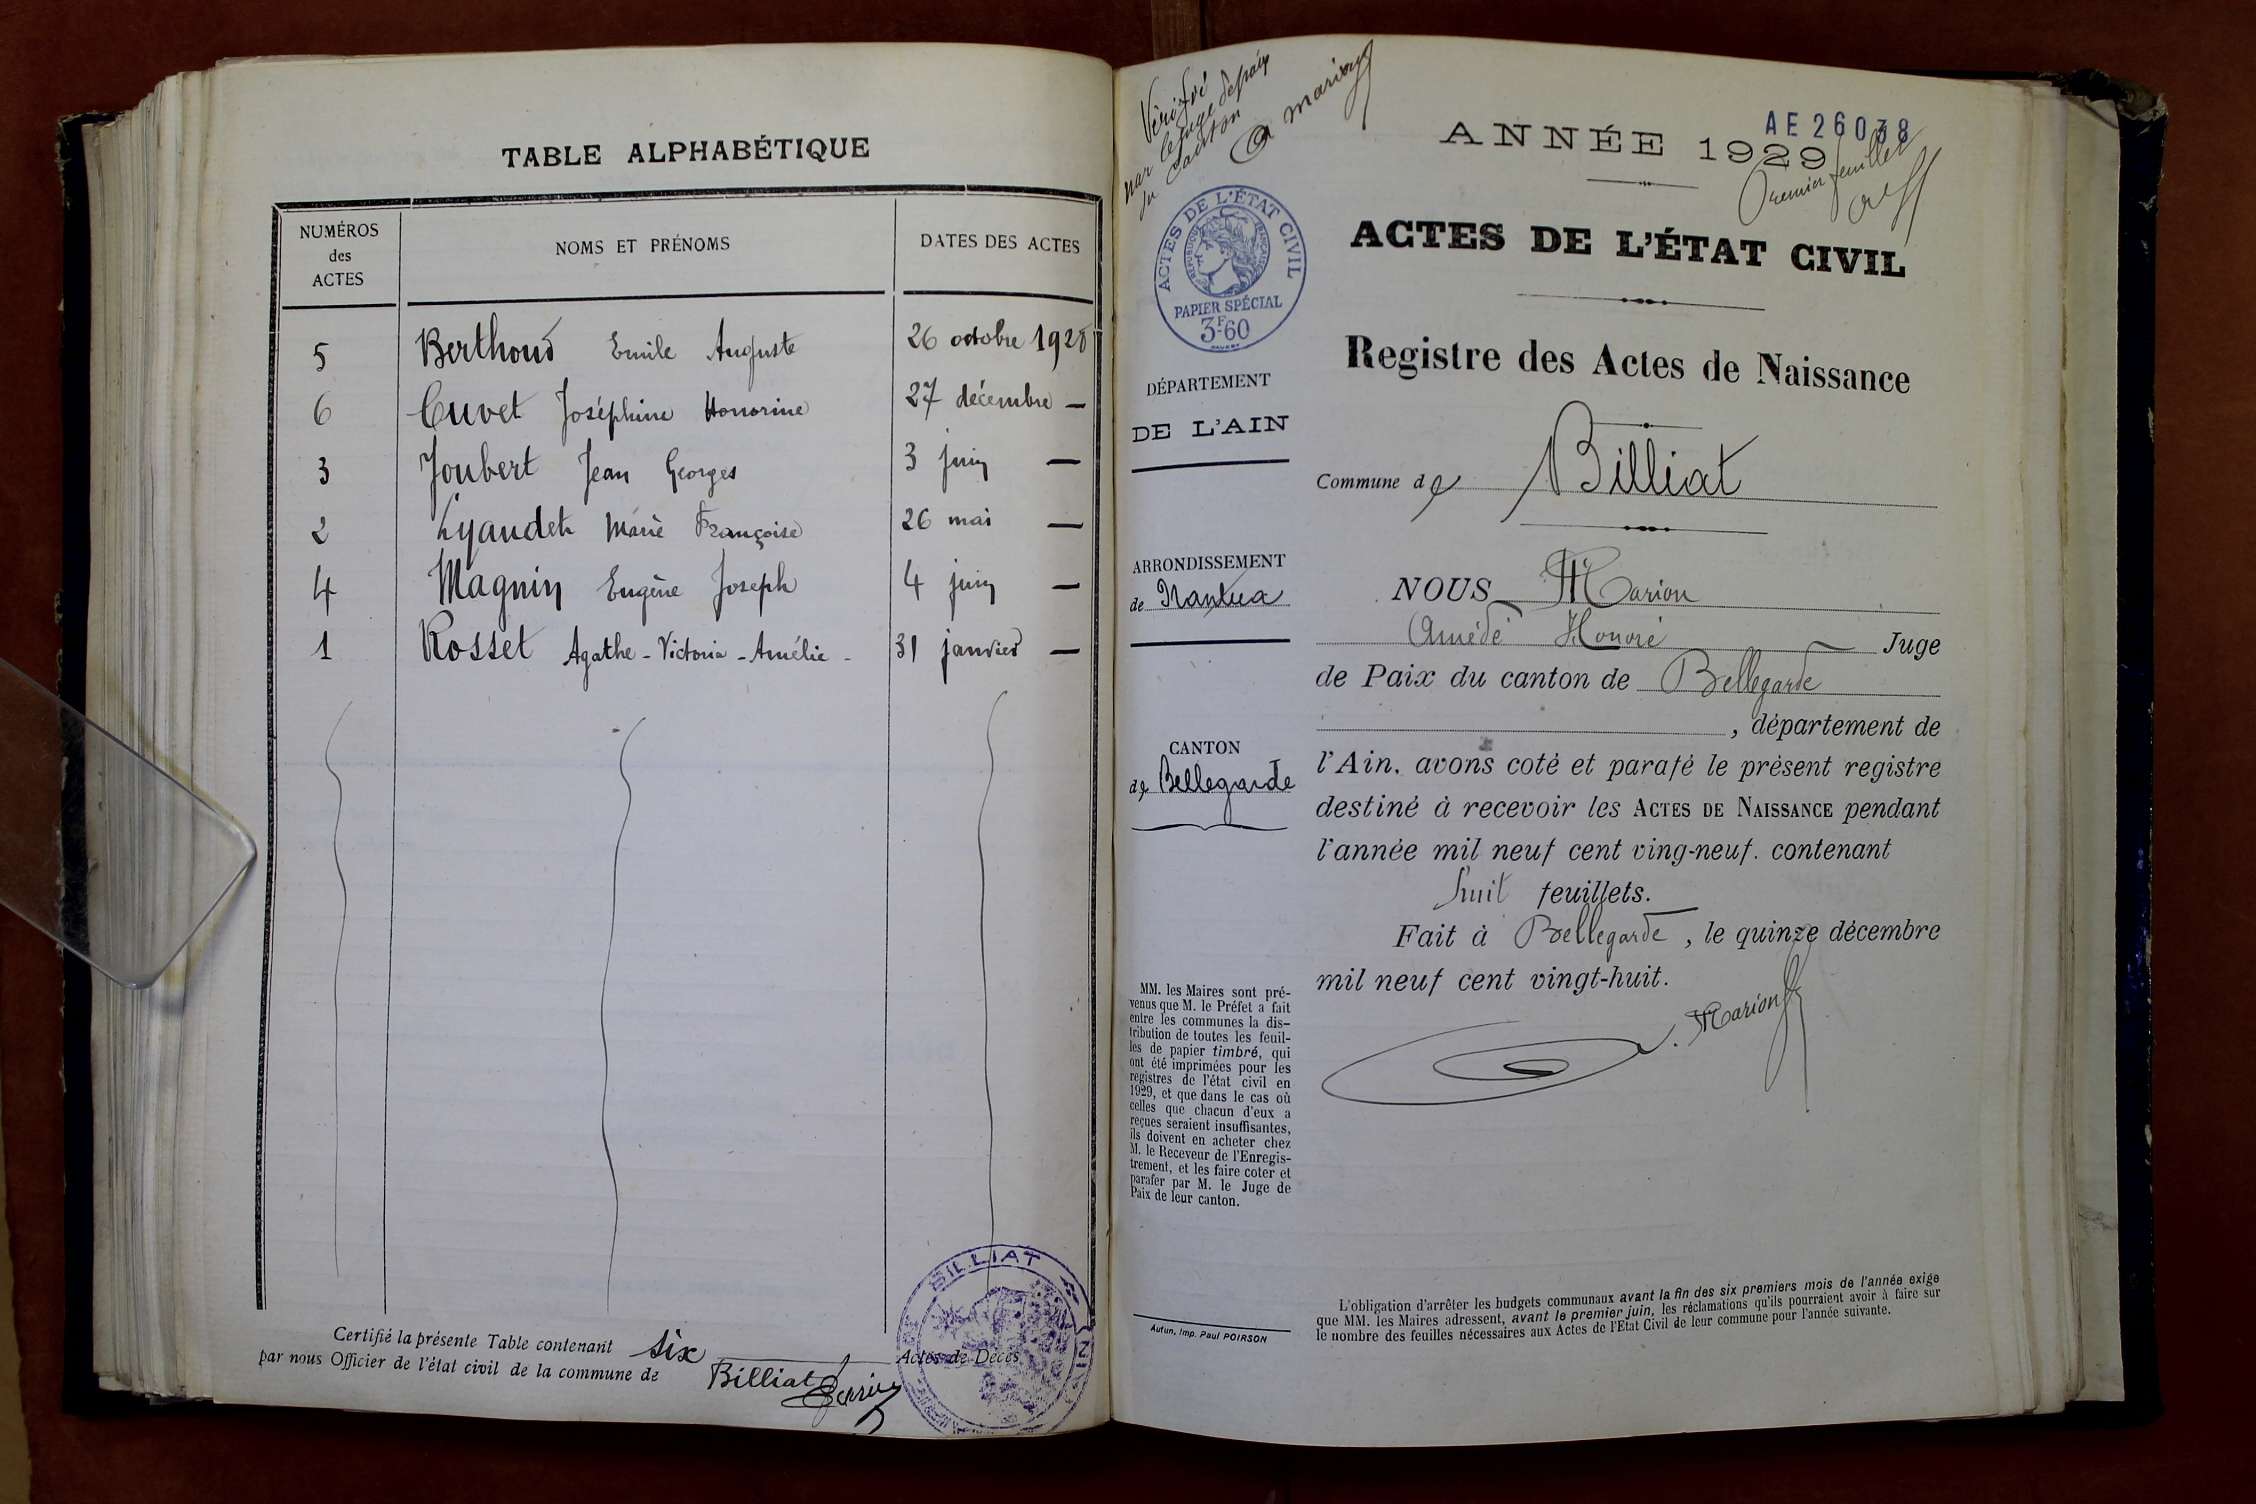 TABLE ALPHABÉTIQUE
NUMÉROS
des
ACTES
NOMS ET PRÉNOMS
DATES DES ACTES
5 Berthoud Emile Auguste 26 octobre 1928
6 Cuvet Joséphine Honorine 27 décembre —
3 Joubert Jean Georges 3 juin —
2 Lyaudet Marie Françoise 26 mai —
4 Magnin Eugène Joseph 4 juin —
1 Rosset Agathe - Victoria - Amélie - 31 janvier —
Certifié la présente Table contenant six Actes de Décès
par nous Officier de l'état civil de la commune de Billiat
BILLIAT
Vérifié
par le juge de paix
du canton
Marion
ACTES DE L'ÉTAT CIVIL
RÉPUBLIQUE FRANÇAISE
PAPIER SPÉCIAL
3F60
DÉPARTEMENT
DE L'AIN
ARRONDISSEMENT
de Nantua
CANTON
de Bellegarde
MM. les Maires sont pré-
venus que M. le Préfet a fait
entre les communes la dis-
tribution de toutes les feuil-
les de papier timbré, qui
ont été imprimées pour les
registres de l'état civil en
1929, et que dans le cas où
celles que chacun d'eux a
reçues seraient insuffisantes,
ils doivent en acheter chez
M. le Receveur de l'Enregis-
trement, et les faire coter et
parafer par M. le Juge de
Paix de leur canton.
Autun, Imp. Paul POIRSON
AE 26038
ANNÉE 1929
Premier feuillet
ACTES DE L'ÉTAT CIVIL
Registre des Actes de Naissance
Commune de Billiat
NOUS Marion
Amédé Honoré Juge
de Paix du canton de Bellegarde
, département de
l'Ain, avons coté et parafé le présent registre
destiné à recevoir les ACTES DE NAISSANCE pendant
l'année mil neuf cent ving-neuf. contenant
huit feuillets.
Fait à Bellegarde, le quinze décembre
mil neuf cent vingt-huit.
Marion
L'obligation d'arrêter les budgets communaux avant la fin des six premiers mois de l'année exige
que MM. les Maires adressent, avant le premier juin, les réclamations qu'ils pourraient avoir à faire sur
le nombre des feuilles nécessaires aux Actes de l'Etat Civil de leur commune pour l'année suivante.